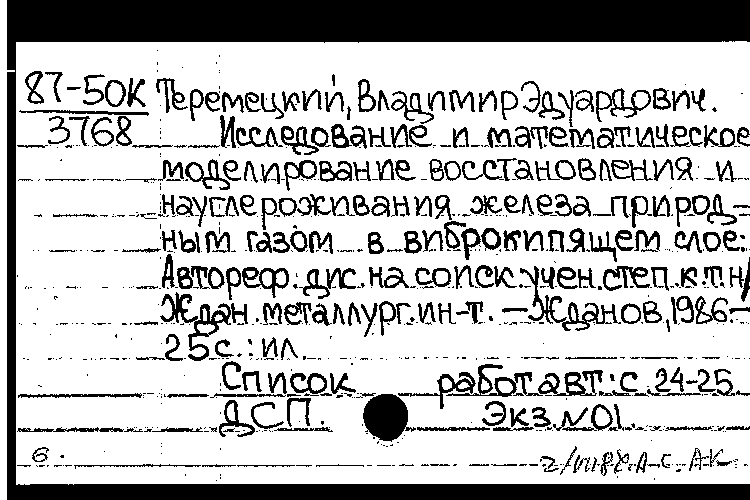 87-50К Теремецкий, Владимир Эдуардович.
3768 Исследование и математическое
моделирование восстановления и
науглероживания железа природ-
ным газом в виброкипящем слое:
Автореф. дис. на соиск. учен. степ. к.т.н/
Ждан. металлург. ин-т. — Жданов, 1986 —
25 с.: ил.
Список работ авт.: с. 24-25.
ДСП. Экз. №01.
6.